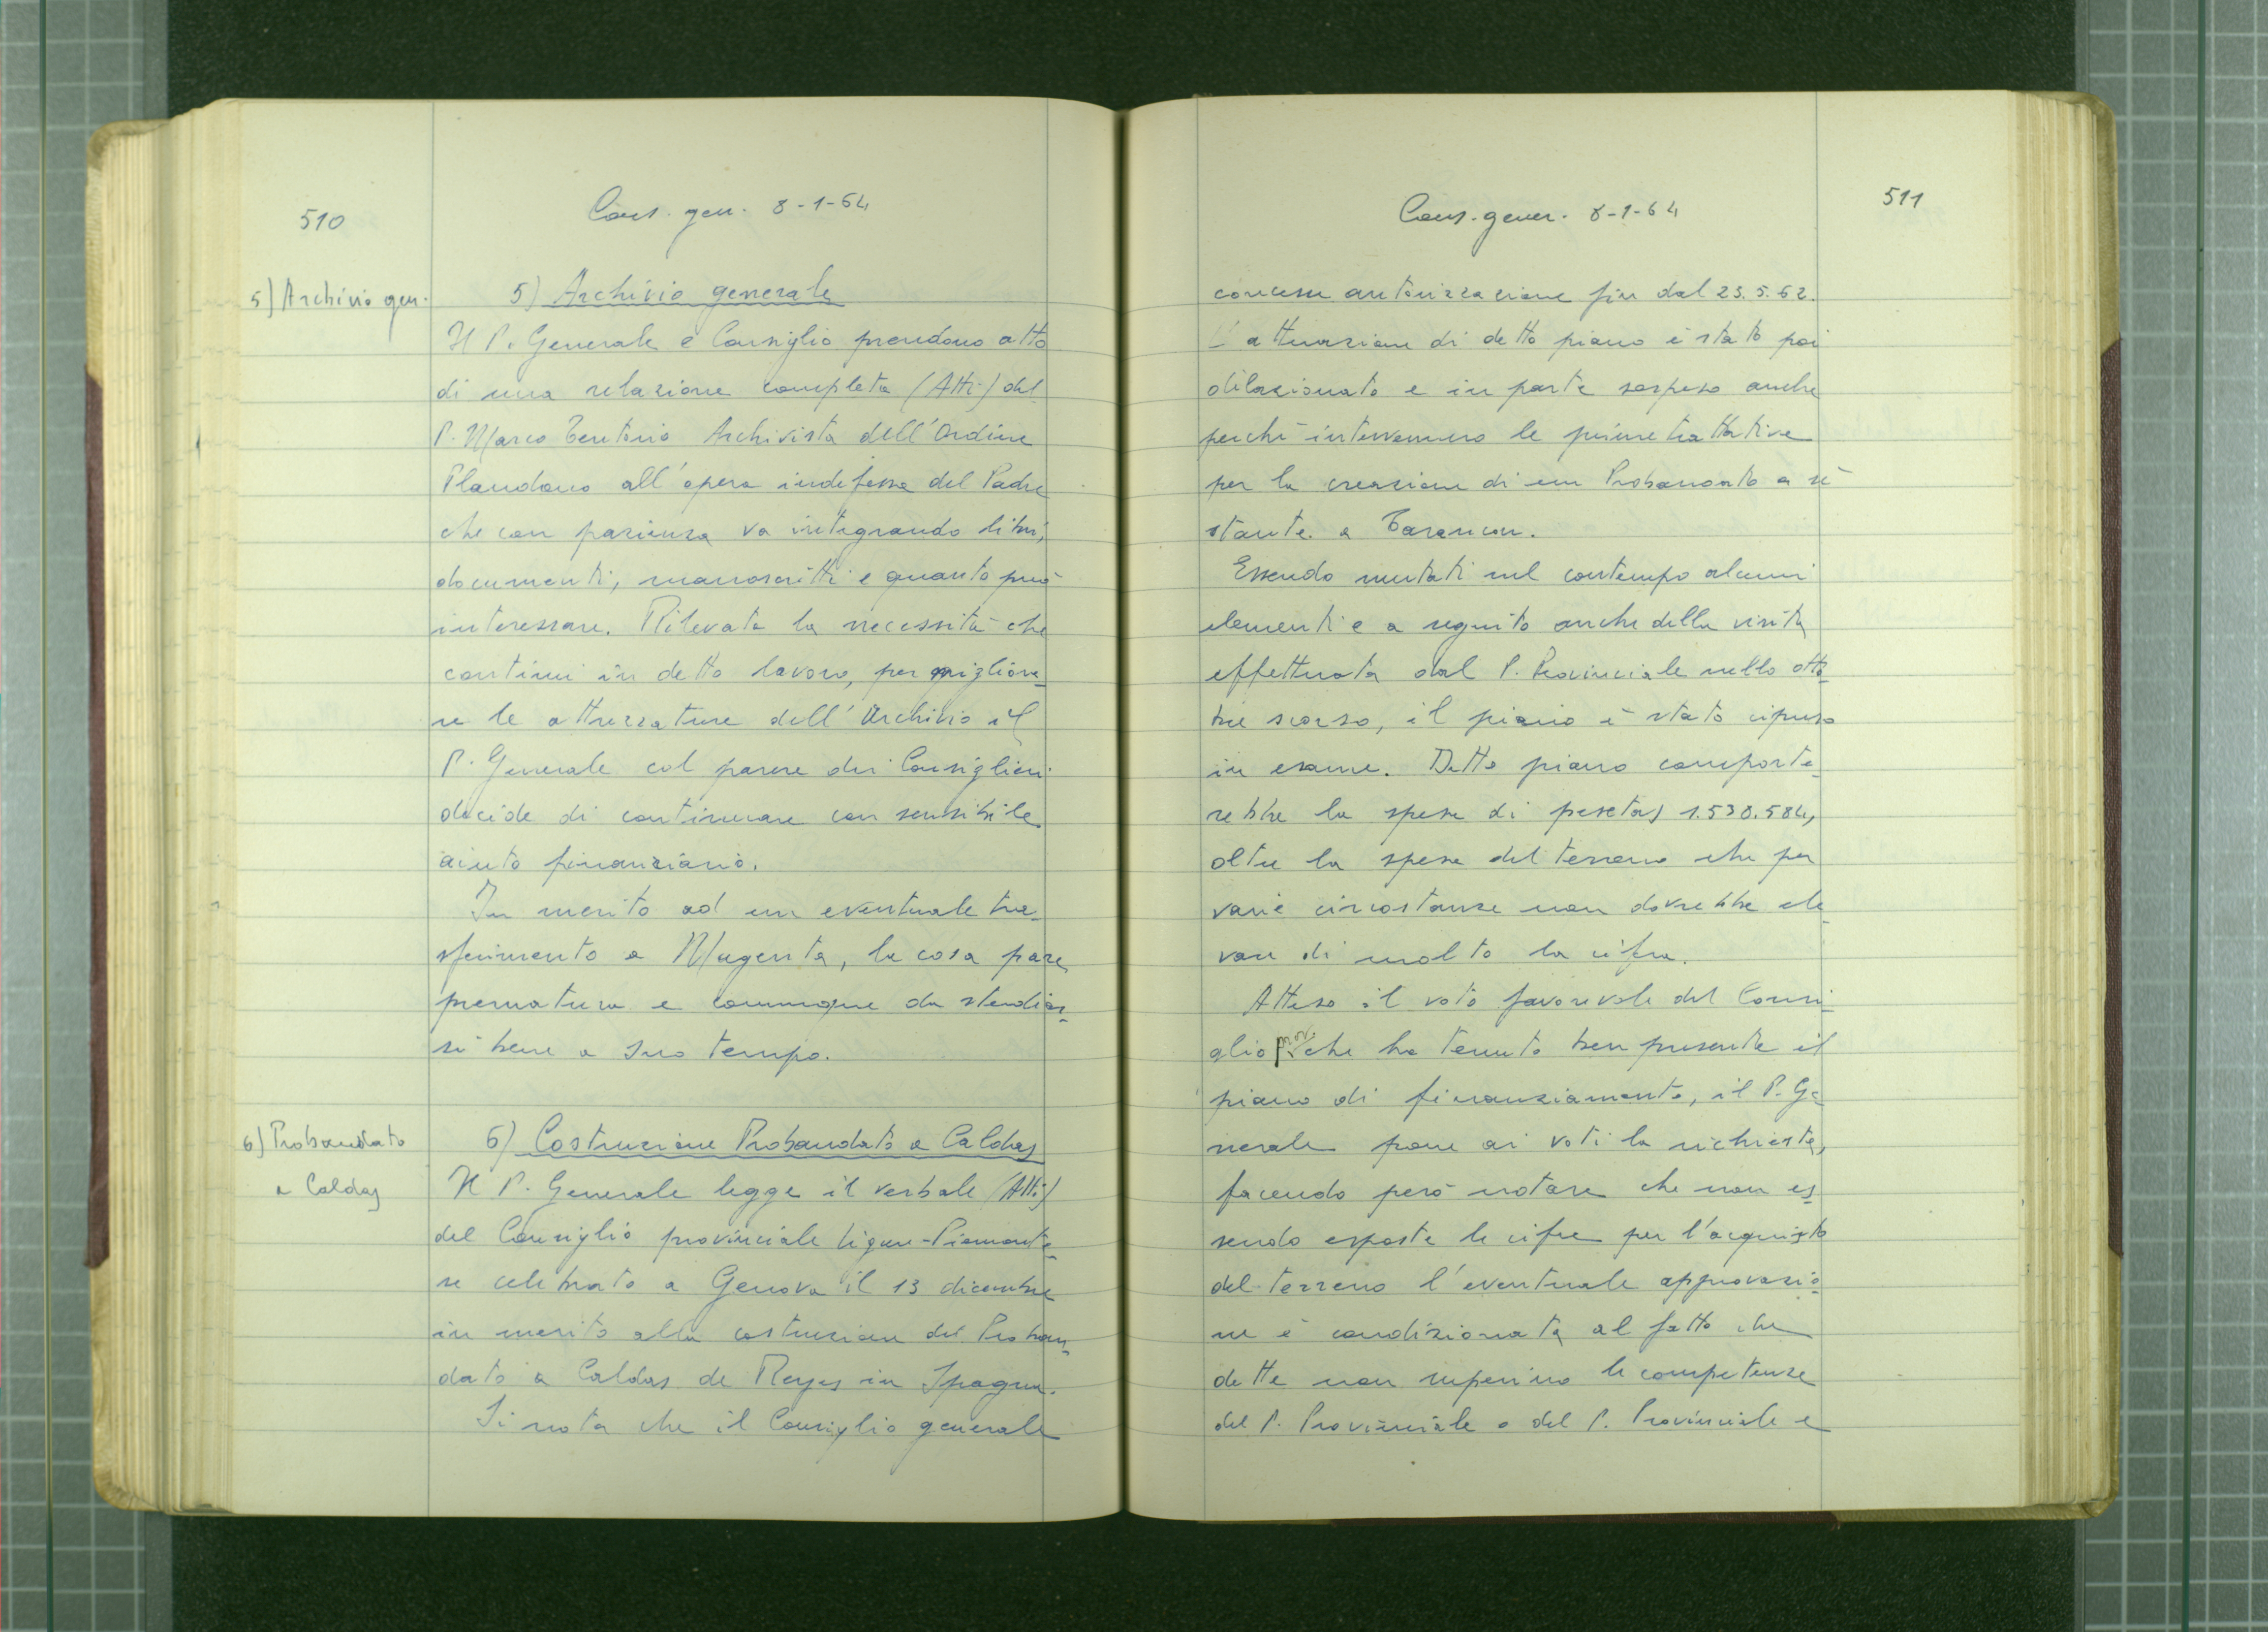 510
Cons. gen. 8-1-64
5) Archivio gen.
5) Archivio generale
Il P. Generale e Consiglio prendono atto
di una relazione completa (Atti) del
P. Marco Tentorio Archivista dell'Ordine
Plaudono all'opera indefessa del Padre
che con pazienza va integrando libri,
documenti, manoscritti e quanto può
interessare. Rilevata la necessità che
continui in detto lavoro, per migliora-
re le attrezzature dell'Archivio il
P. Generale col parere dei Consiglieri
decide di continuare con sensibile
aiuto finanziario.
In merito ad un eventuale tra-
sferimento a Magenta, la cosa pare
prematura e comunque da studiar-
si bene a suo tempo.
6) Probandato
a Caldas
6) Costruzione Probandato a Caldas
Il P. Generale legge il verbale (Atti)
del Consiglio provinciale Ligure-Piemonte-
se celebrato a Genova il 13 dicembre
in merito alla costruzione del Proban-
dato a Caldas de Reyes in Spagna.
Si nota che il Consiglio generale
511
Cons. gener. 8-1-64
concesse autorizzazione fin dal 23.5.62.
L'attuazione di detto piano è stato poi
dilazionato e in parte sospeso anche
perché intervennero le prime trattative
per la creazione di un Probandato a sè
stante a Tarancon.
Essendo mutati nel contempo alcuni
elementi e a seguito anche della visita
effettuata dal P. Provinciale nello otto-
bre scorso, il piano è stato ripreso
in esame. Detto piano comporte-
rebbe la spesa di pesetas 1.538.584,
oltre la spesa del terreno che per
varie circostanze non dovrebbe ele-
vare di molto la cifra.
Atteso il voto favorevole del Consi-
glio prov. che ha tenuto ben presente il
piano di finanziamento, il P. Ge-
nerale pone ai voti la richiesta,
facendo però notare che non es-
sendo esposte le cifre per l'acquisto
del terreno l'eventuale approvazio-
ne è condizionata al fatto che
dette non superino le competenze
del P. Provinciale o del P. Provinciale e